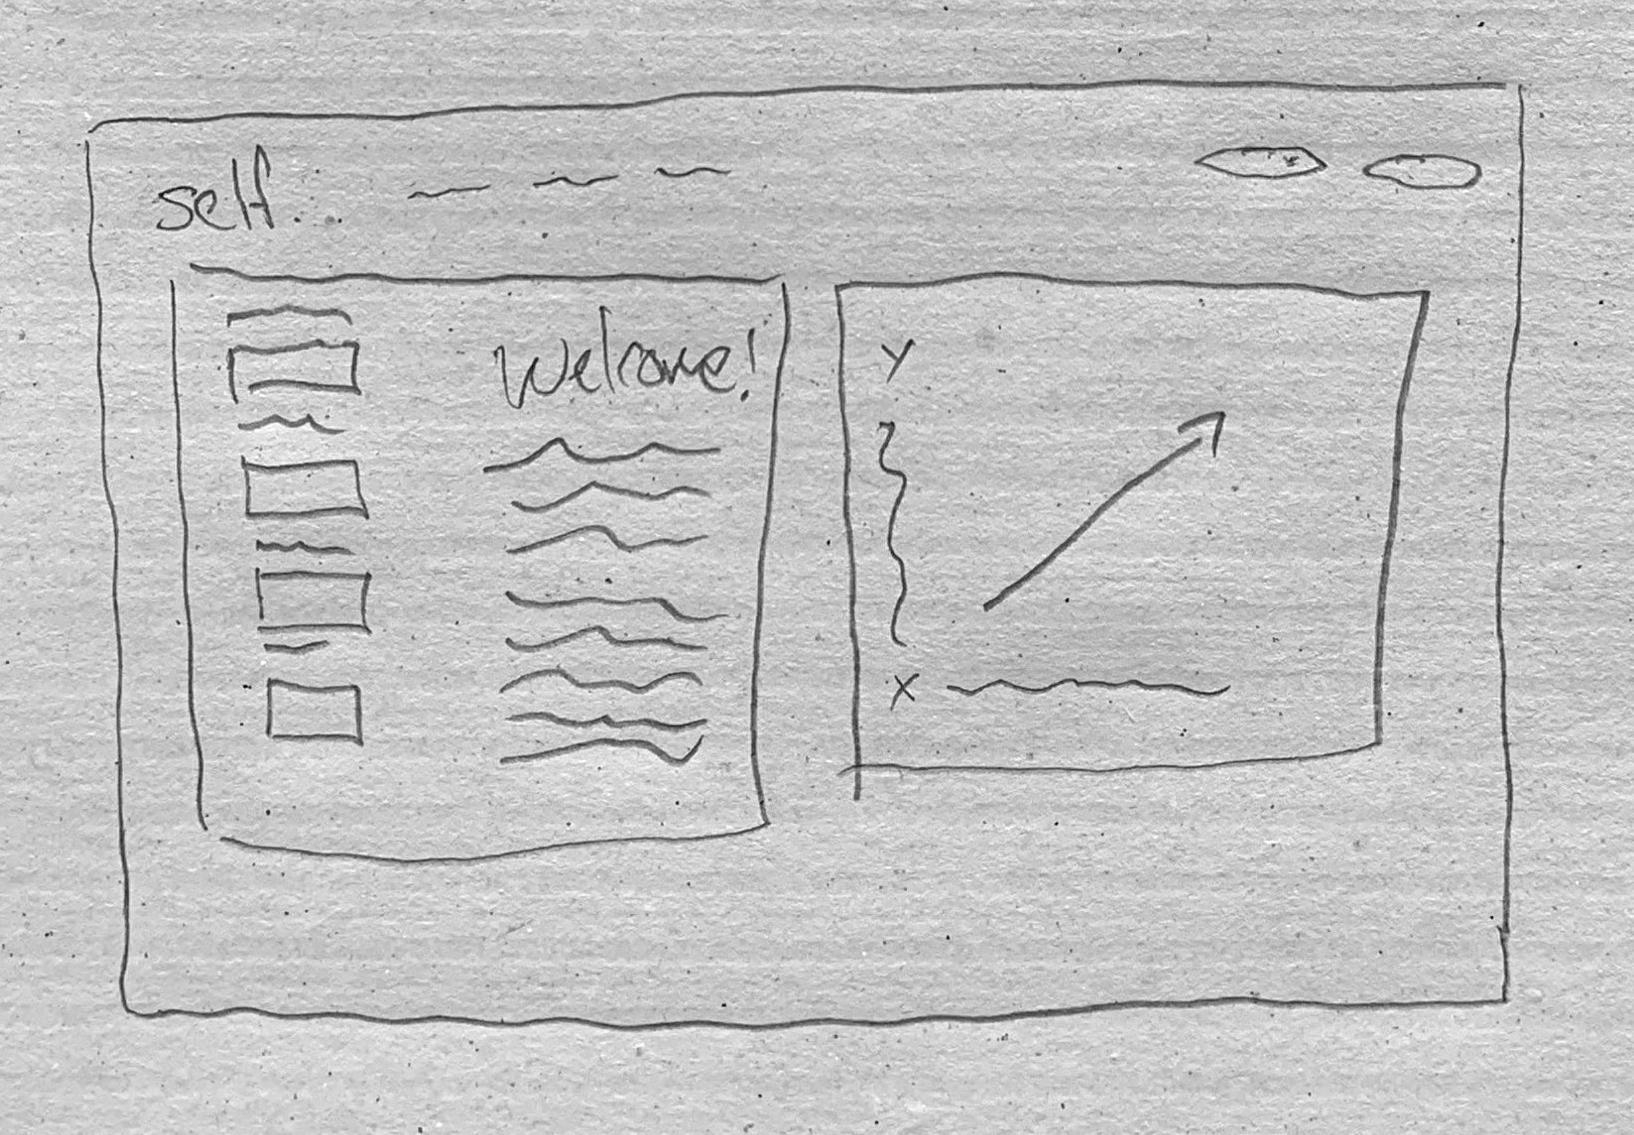 self.
Welcome!
Y
X